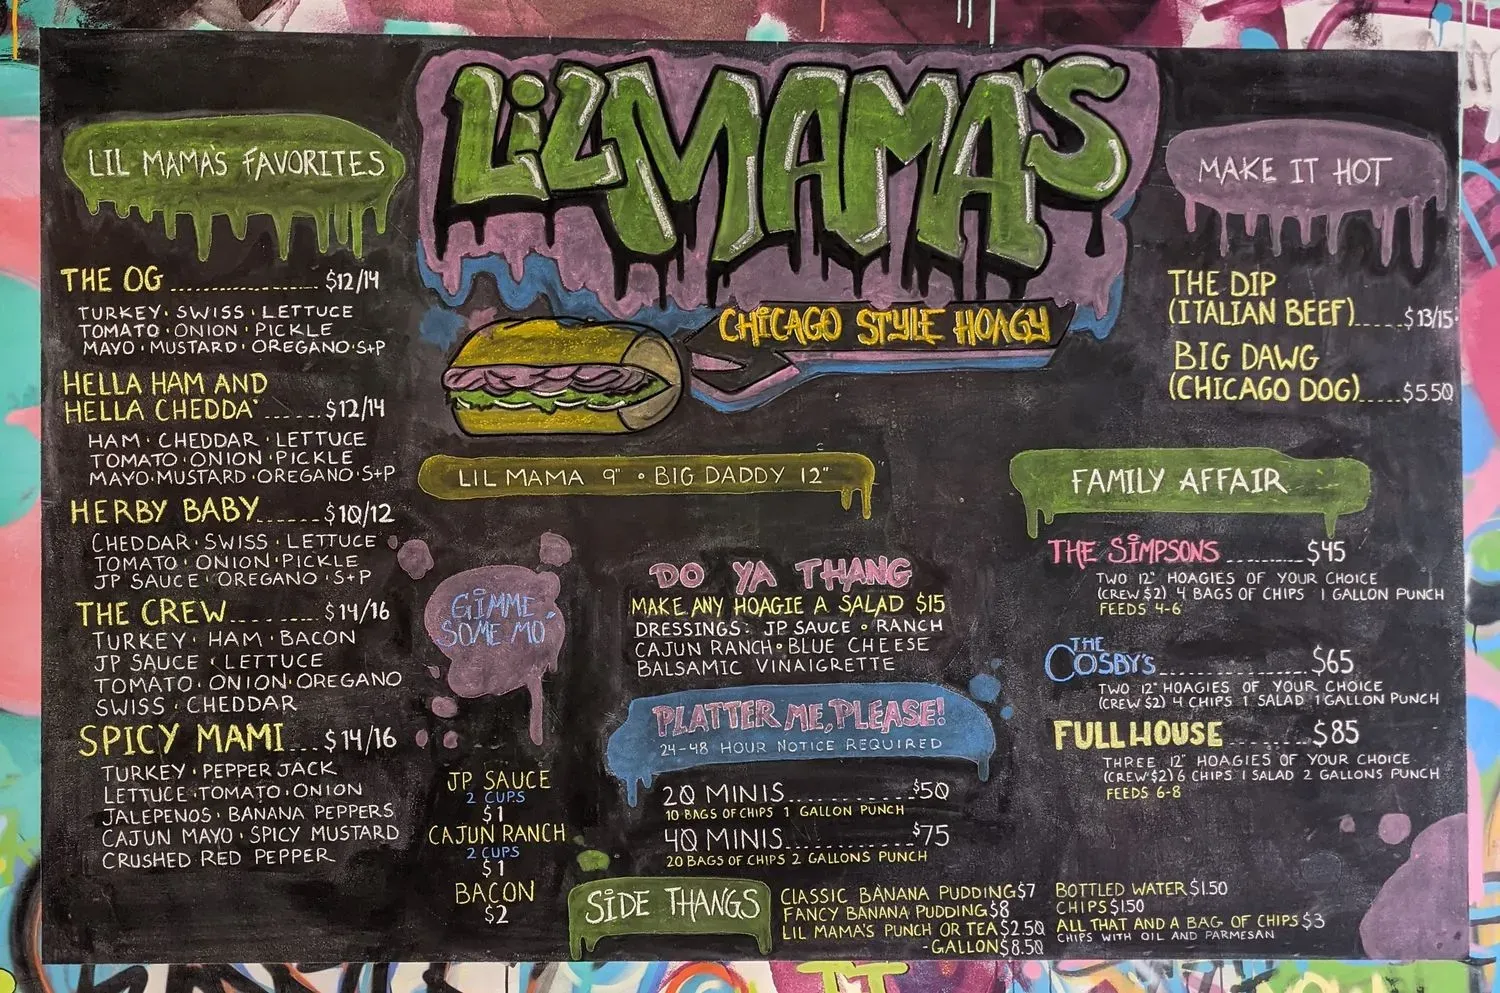 LIL MAMA'S
CHICAGO STYLE HOAGY
LIL MAMA 9" • BIG DADDY 12"
LIL MAMA'S FAVORITES
THE OG .................. $12/14
TURKEY · SWISS · LETTUCE
TOMATO · ONION · PICKLE
MAYO · MUSTARD · OREGANO · S+P
HELLA HAM AND
HELLA CHEDDA' ...... $12/14
HAM · CHEDDAR · LETTUCE
TOMATO · ONION · PICKLE
MAYO · MUSTARD · OREGANO · S+P
HERBY BABY ...... $10/12
CHEDDAR · SWISS · LETTUCE
TOMATO · ONION · PICKLE
JP SAUCE · OREGANO · S+P
THE CREW ......... $14/16
TURKEY · HAM · BACON
JP SAUCE · LETTUCE
TOMATO · ONION · OREGANO
SWISS · CHEDDAR
SPICY MAMI ... $14/16
TURKEY · PEPPER JACK
LETTUCE · TOMATO · ONION
JALEPENOS · BANANA PEPPERS
CAJUN MAYO · SPICY MUSTARD
CRUSHED RED PEPPER
GIMME
SOME MO'
JP SAUCE
2 CUPS
$1
CAJUN RANCH
2 CUPS
$1
BACON
$2
DO YA THANG
MAKE ANY HOAGIE A SALAD $15
DRESSINGS: JP SAUCE • RANCH
CAJUN RANCH • BLUE CHEESE
BALSAMIC VINAIGRETTE
PLATTER ME, PLEASE!
24-48 HOUR NOTICE REQUIRED
20 MINIS ............ $50
10 BAGS OF CHIPS 1 GALLON PUNCH
40 MINIS ............ $75
20 BAGS OF CHIPS 2 GALLONS PUNCH
SIDE THANGS
CLASSIC BANANA PUDDING $7
FANCY BANANA PUDDING $8
LIL MAMA'S PUNCH OR TEA $2.50
-GALLON $8.50
BOTTLED WATER $1.50
CHIPS $1.50
ALL THAT AND A BAG OF CHIPS $3
CHIPS WITH OIL AND PARMESAN
MAKE IT HOT
THE DIP
(ITALIAN BEEF) ..... $13/15
BIG DAWG
(CHICAGO DOG) ..... $5.50
FAMILY AFFAIR
THE SIMPSONS ......... $45
TWO 12" HOAGIES OF YOUR CHOICE
(CREW $2) 4 BAGS OF CHIPS 1 GALLON PUNCH
FEEDS 4-6
THE
COSBY'S .................. $65
TWO 12" HOAGIES OF YOUR CHOICE
(CREW $2) 4 CHIPS 1 SALAD 1 GALLON PUNCH
FULLHOUSE ......... $85
THREE 12" HOAGIES OF YOUR CHOICE
(CREW $2) 6 CHIPS 1 SALAD 2 GALLONS PUNCH
FEEDS 6-8